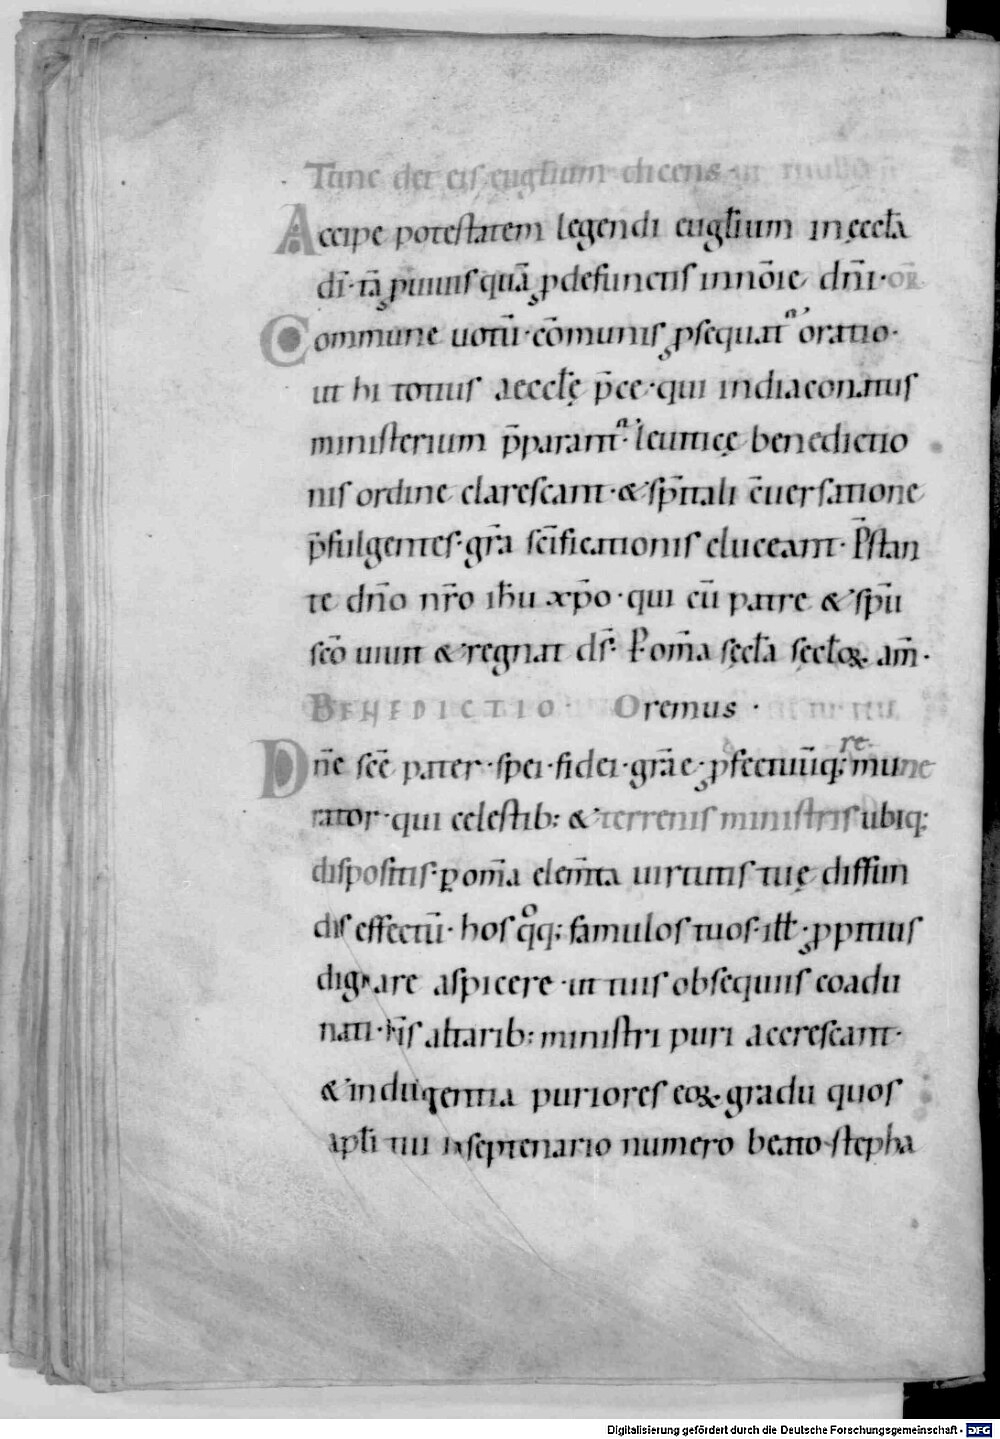 Tunc det eis euglium dicens
Accipe potestatem legendi eugl̄ium in ęccl̄a
dī· tā ꝓ uiuis quā ꝓ defunctis in nōie dn̄i· OR̄
Commune uotū· cōmunis ꝓsequat̃ oratio·
ut hi totius aecclę̄ p̄ce· qui in diaconatus
ministerium p̄parant̃· leuiticę benedictio
nis ordine clarescant· & sp̄itali c̄uersatione
p̄fulgentes· gr̄a sc̄ificationis eluceant· P̄stan
te dn̄o nr̄o ih̄u xp̄o· qui cū patre & sp̄u
sc̄o uiuit & regnat ds̄· P om̄a sęcl̄a sęcl̄oꝝ. am̄·
BENEDICTIO· Oremus·
Dn̄e sc̄e pater· spei· fidei· gr̄ae· ꝓfectuūq; remune
rator· qui celestib; & terrenis ministris ubiq;
dispositis· ꝑ om̄a elem̄ta uirtutis tuę diffun
dis effectū· hos qͦq; famulos tuos· ill̄· ꝓpitius
dignare aspicere· ut tuis obsequiis coadu
nati· s̄cis altarib; ministri puri accrescant·
& indulgentia puriores eoꝝ. gradu quos
apl̄i tui in septenario numero beato stepha
Digitalisierung gefördert durch die Deutsche Forschungsgemeinschaft - DFG